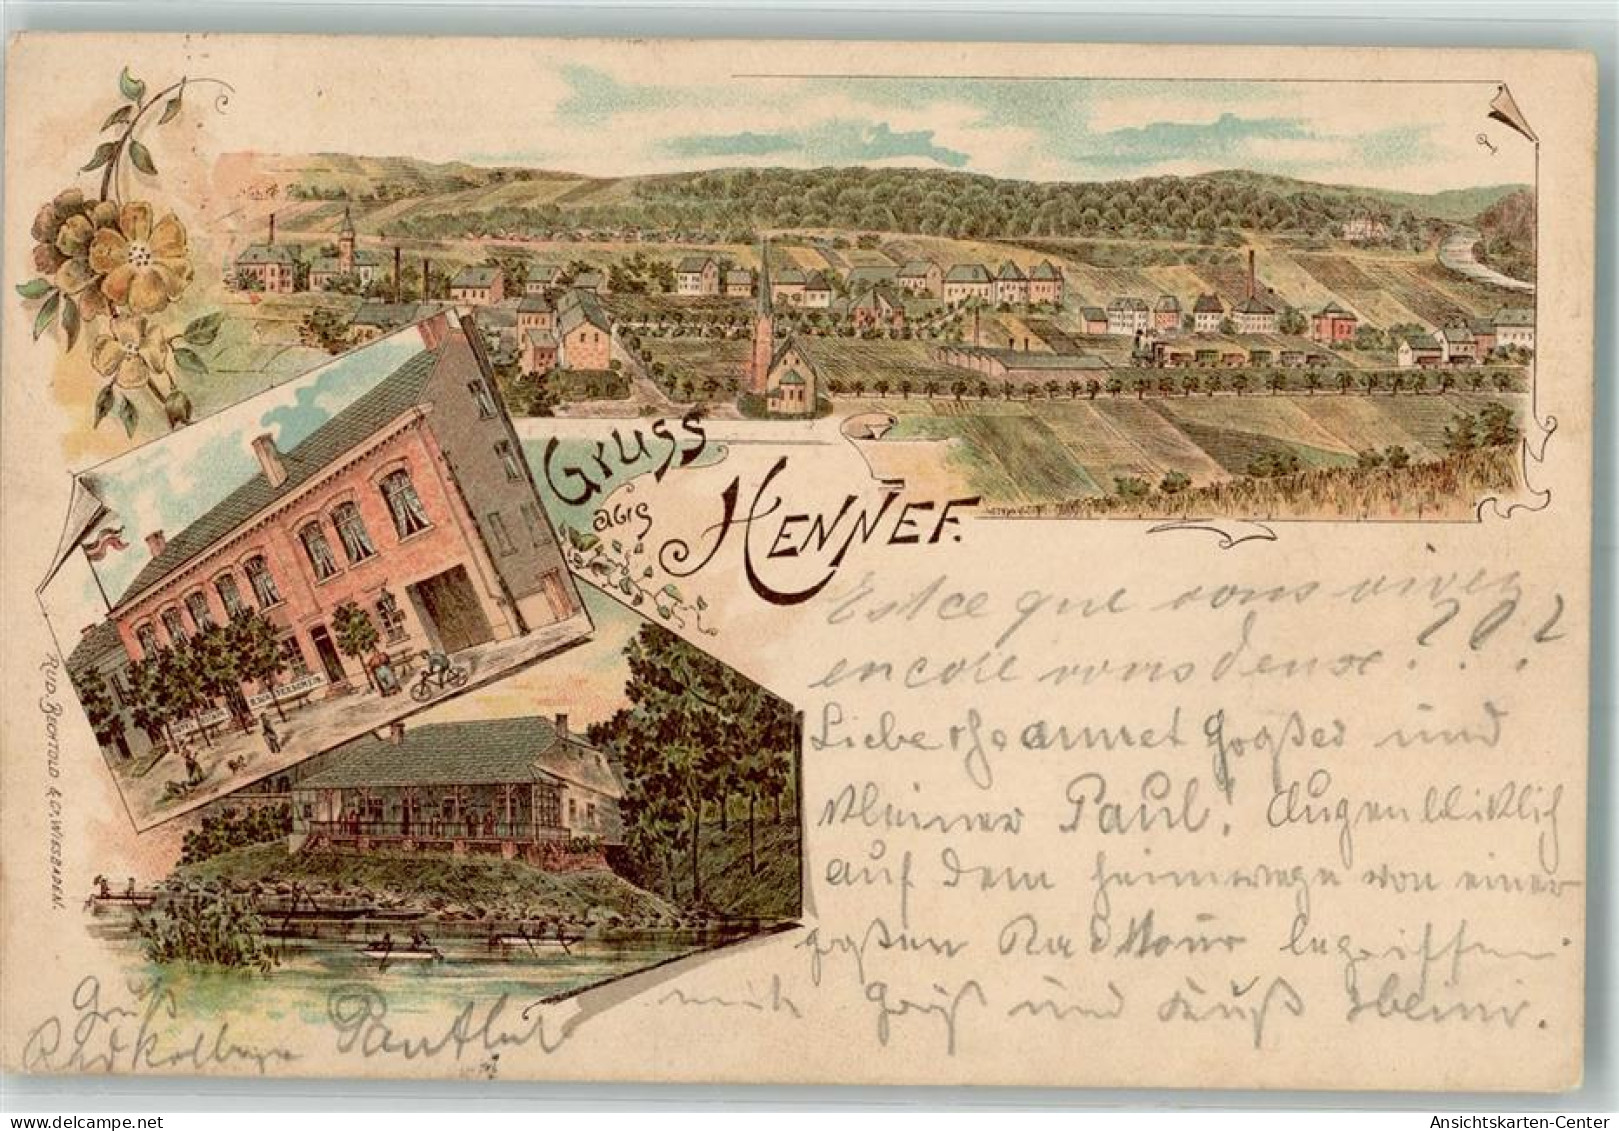 Gruss
aus
Hennef.
Est ce que vous vivez
encore vous deux ? ? ?
Liebe großer und
kleiner Paul! Augenblicklich
auf dem Heimwege von einer
großen Radtour begriffen
Gruß und Kuß
Gruß
RUD. BECHTOLD & Cº, WIESBADEN.
AnsichtsKarten-Center